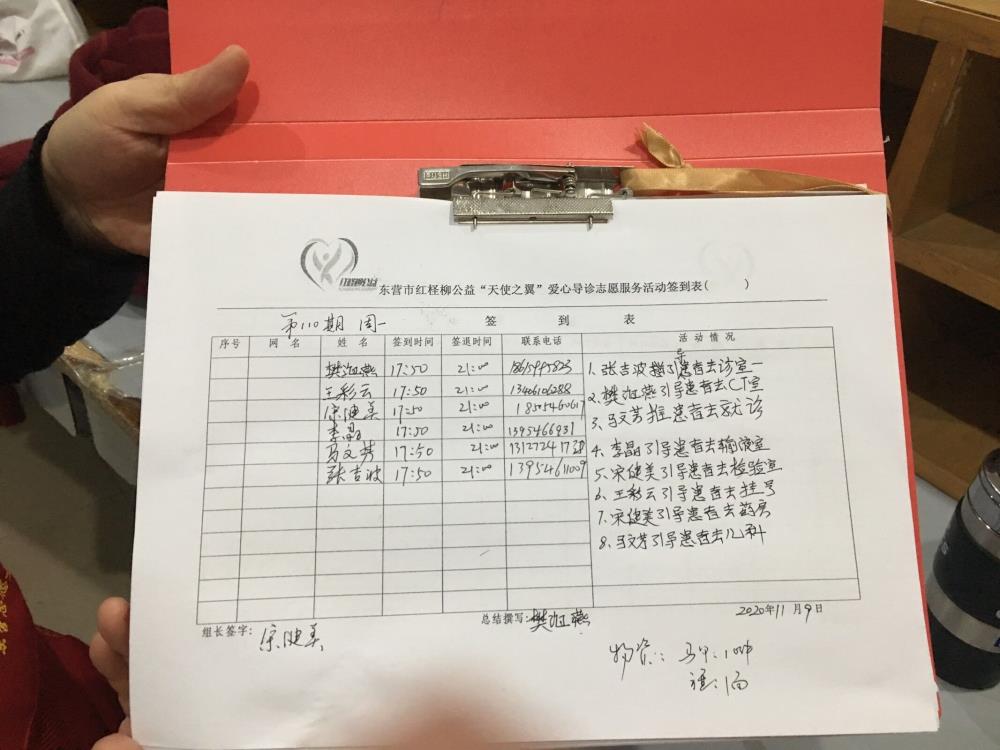 东营市红柽柳公益“天使之翼”爱心导诊志愿服务活动签到表( )
第110期 周一 签 到 表
序号 网 名 姓 名 签到时间 签退时间 联系电话 活 动 情 况
樊旭燕 17:50 21:00 1865995823
王彩云 17:50 21:00 13406106288
宋健美 17:50 21:00
李晶 17:50 21:00 1395466931
马文芳 17:50 21:00
张吉波 17:50 21:00 13954611009
1、张吉波引导患者去诊室一
2、樊旭燕引导患者去CT室
3、马文芳推患者去就诊
4、李晶引导患者去输液室
5、宋健美引导患者去检验室
6、王彩云引导患者去挂号
7、宋健美引导患者去药房
8、马文芳引导患者去儿科
组长签字: 宋健美
总结撰写: 樊旭燕
2020年11月9日
物资: 马甲:10件
旗:1面